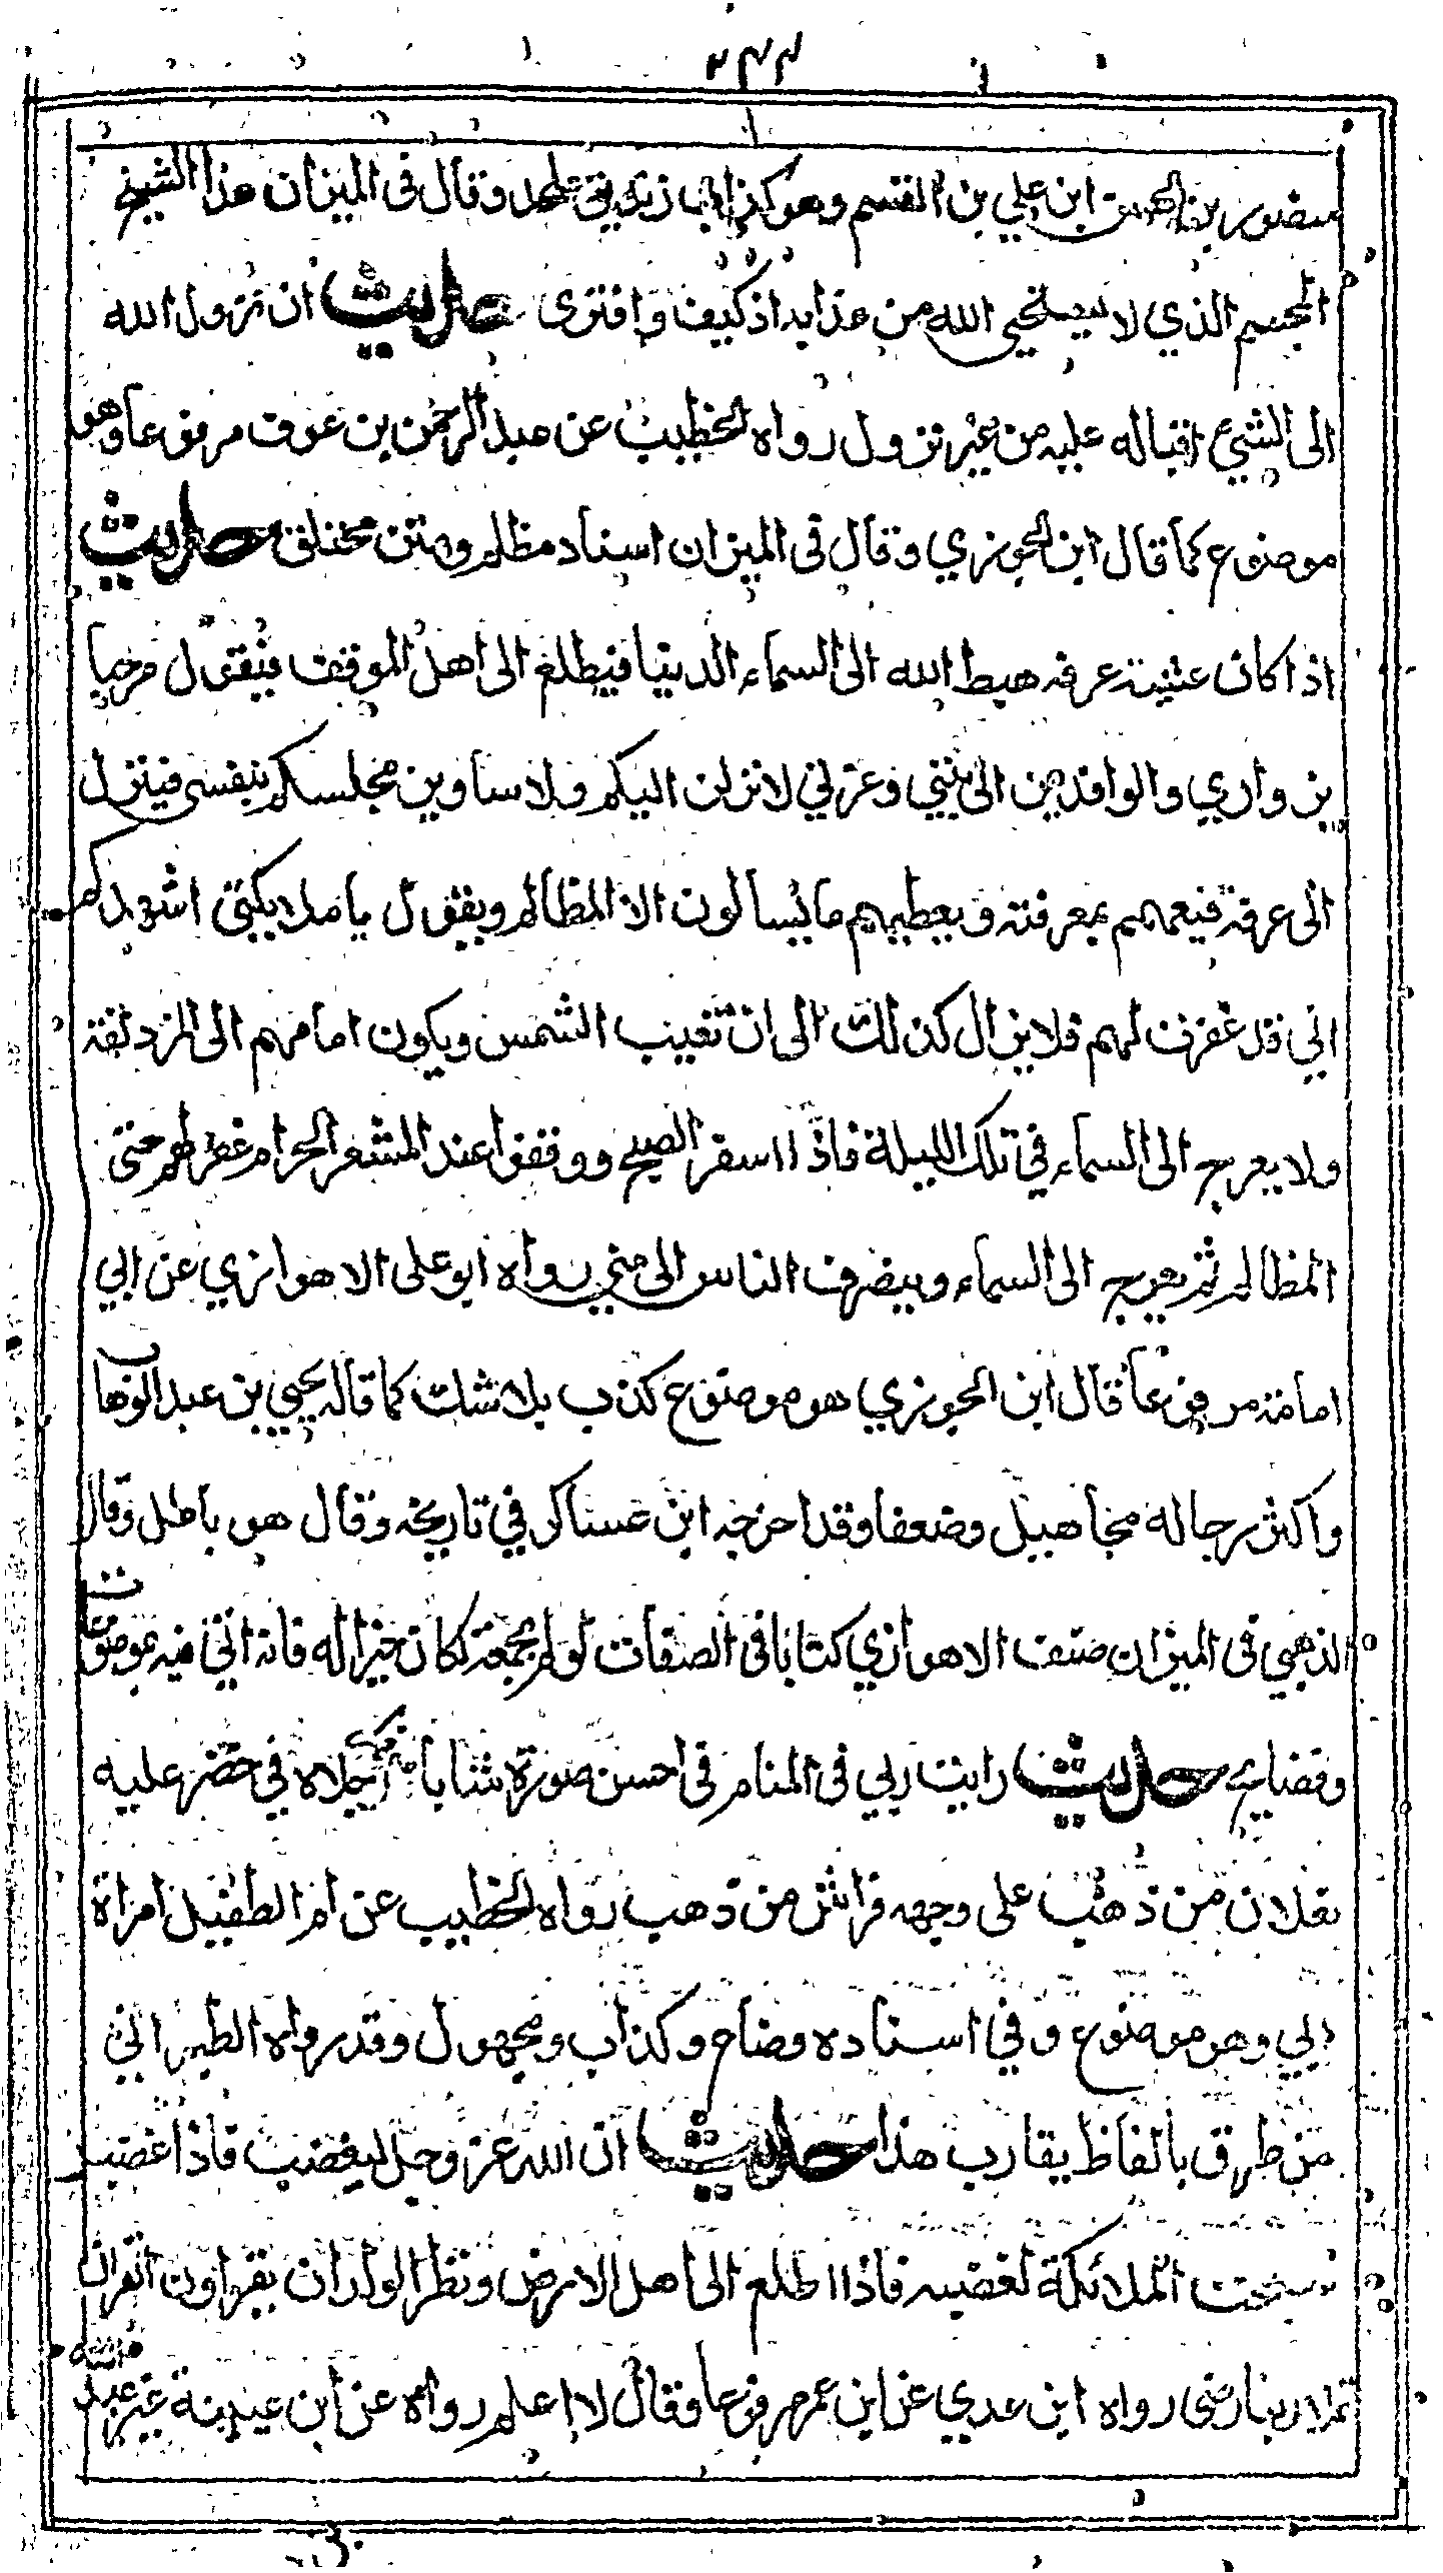 منصور بن الحسن ابن علي بن القسم وهو كذاب زنديق ملحد وقال في الميزان هذا الشيخ
المجسم الذي لا يستحيي الله من عذابه اذ كيف وافترى حديث ان نزول الله
الى الشيئ اقباله عليه من غير نزول رواه الخطيب عن عبد الرحمن بن عوف مرفوعا وهو
موضوع كما قال ابن الجوزي وقال في الميزان اسناد مظلم ومتن مختلق حديث
اذا كان عشية عرفه هبط الله الى السماء الدينا فيطلع الى اهل الموقف فيقول مرحبا
بزواري والوافدين الى بيتي وعزتي لانزلن اليكم ولاساوين مجلسكم بنفسي فينزل
الى عرفة فيعمهم بمعرفته ويعطيهم ما يسالون الا المظالم ويقول يا ملايكتي اشهدكم
اني قد غفرت لهم فلا يزال كذلك الى ان تغيب الشمس ويكون امامهم الى المزدلفة
ولا يعرج الى السماء في تلك الليلة فاذا اسفر الصبح ووقفوا عند المشعر الحرام غفر لهم حتى
المظالم ثم يعرج الى السماء وينصرف الناس الى منى رواه ابو على الاهوازي عن ابي
امامة مرفوعا قال ابن الجوزي هو موضوع كذب بلا شك كما قاله يحيى بن عبد الوهاب
واكثر رجاله مجاهيل وضعفا وقد اخرجه ابن عساكر في تاريخه وقال هو باطل وقال
الذهبي في الميزان صنف الاهوازي كتابا في الصفات لو لم يجمعه لكان خيرا له فانه اتى فيه بموضوعات
وفضايح حديث رايت ربي في المنام في احسن صورة شابا رجلاه في خضر عليه
نعلان من ذهب على وجهه فراش من ذهب رواه الخطيب عن ام الطفيل امراة
ابي وهو موضوع وفي اسناده وضاع وكذاب ومجهول وقد رواه الطبراني
من طرق بالفاظ يقارب هذا حديث ان الله عز وجل ليغضب فاذا غضب
سبحت الملائكة لغضبه فاذا اطلع الى اهل الارض ونظر الولدان يقراون القران
تملا ربنا رضى رواه ابن عدي عن ابن عمر مرفوعا وقال لا اعلم رواه عن ابن عيينة غير عبد الله